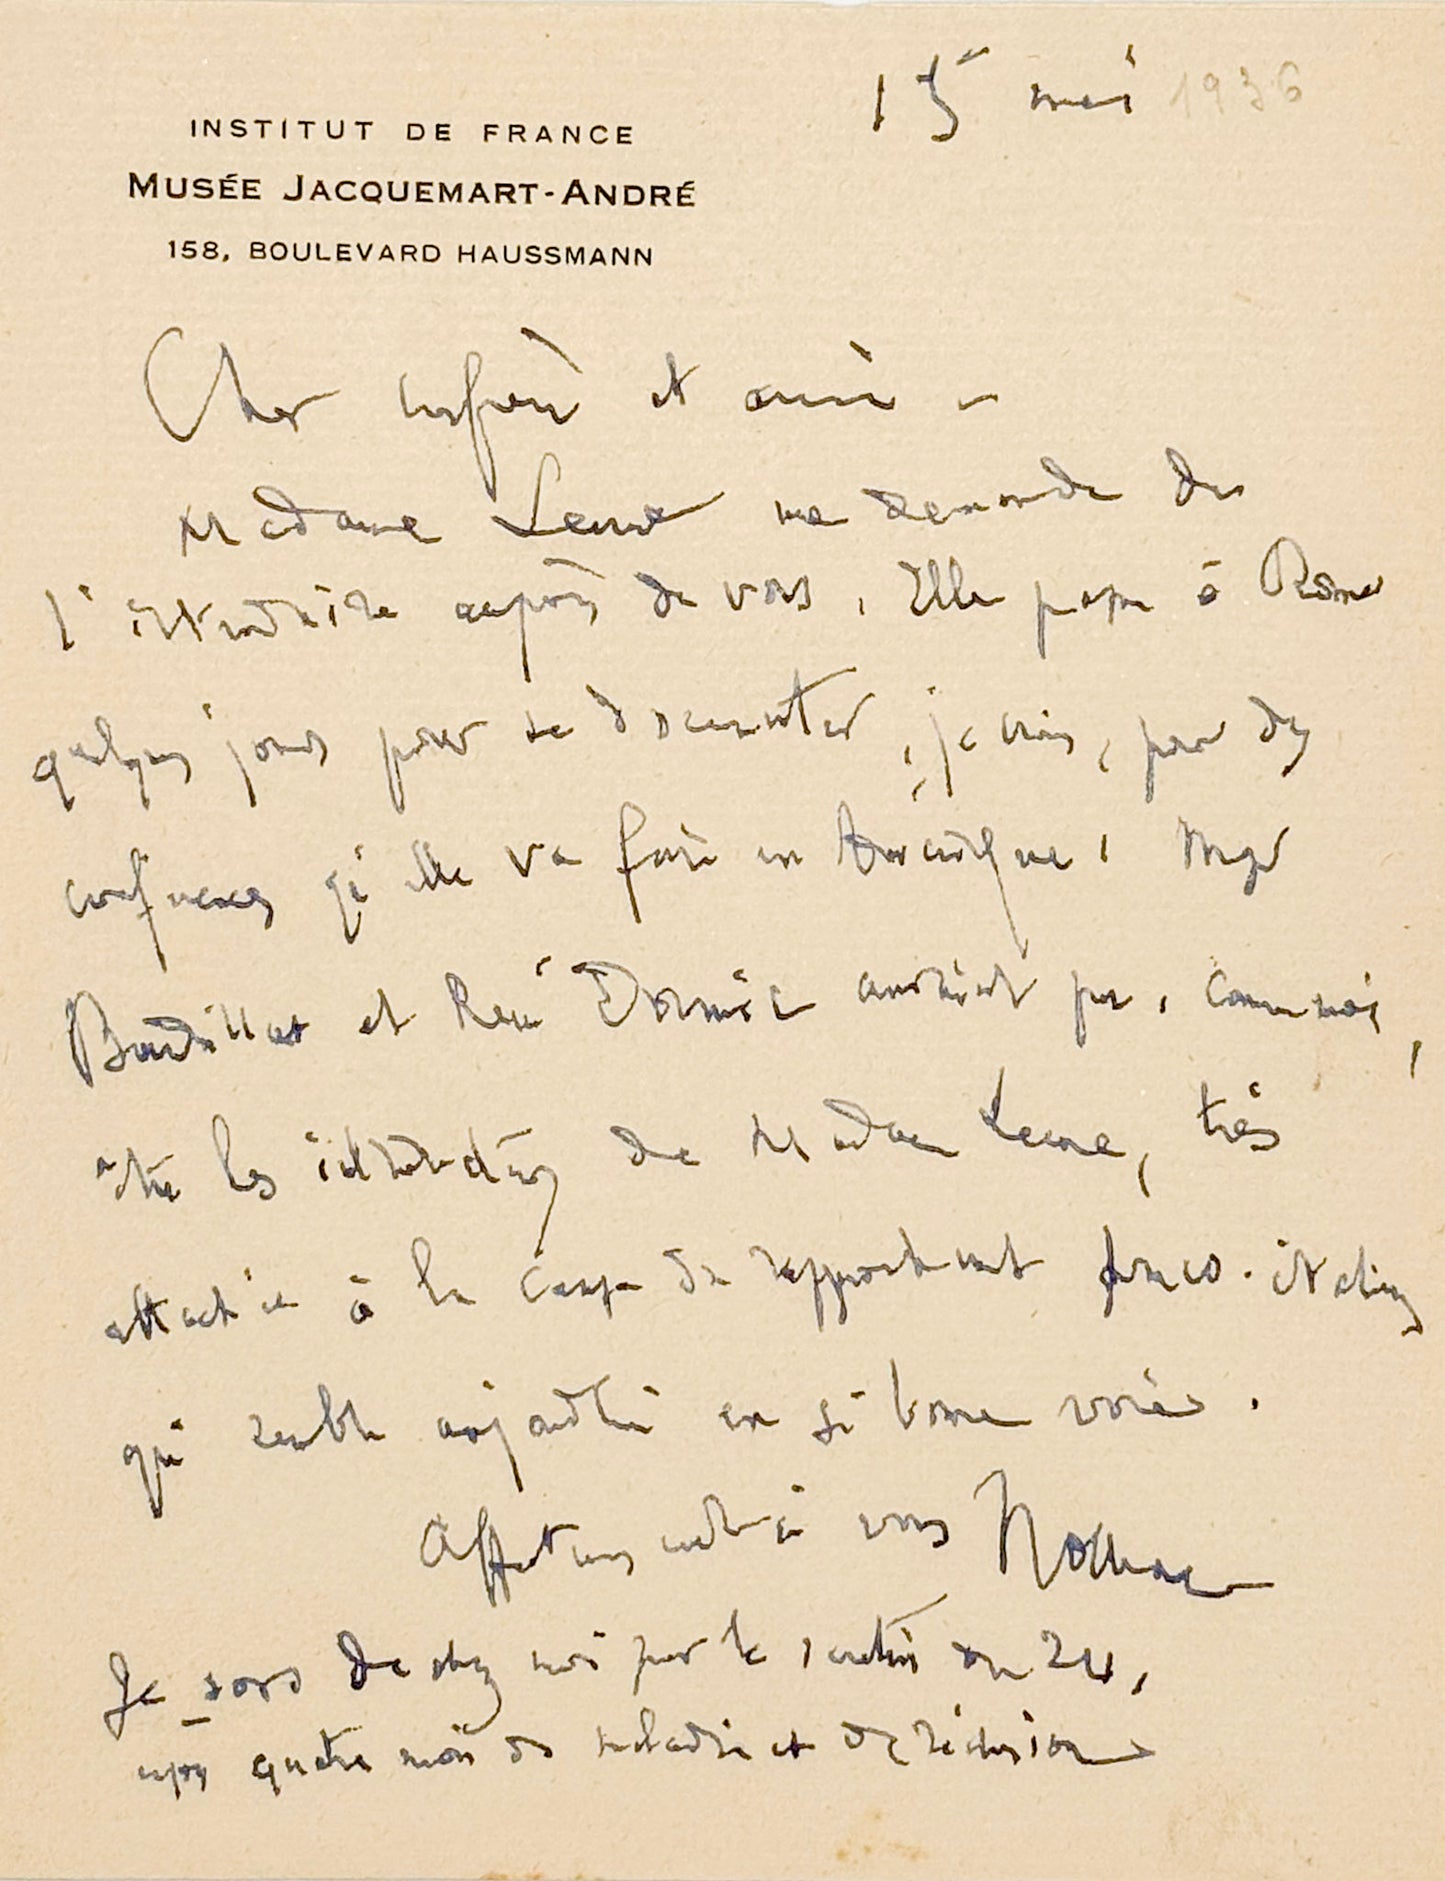 15 mai 1936
INSTITUT DE FRANCE
MUSÉE JACQUEMART-ANDRÉ
158, BOULEVARD HAUSSMANN
Cher confrère et ami –
Madame me demande de
l'introduire auprès de vous. Elle passe à Rome
quelques jours pour se documenter, je crois, pour des
conférences qu'elle va faire en Amérique. Mgr
Baudrillart et René Doumic auraient pu, comme moi,
être les introducteurs de Madame, très
attachée à la cause du rapprochement franco-italien
qui semble aujourd'hui en si bonne voie.
Affectueusement à vous Nolhac
Je sors de chez moi pour le le 24,
après quatre mois de maladie et de réclusion